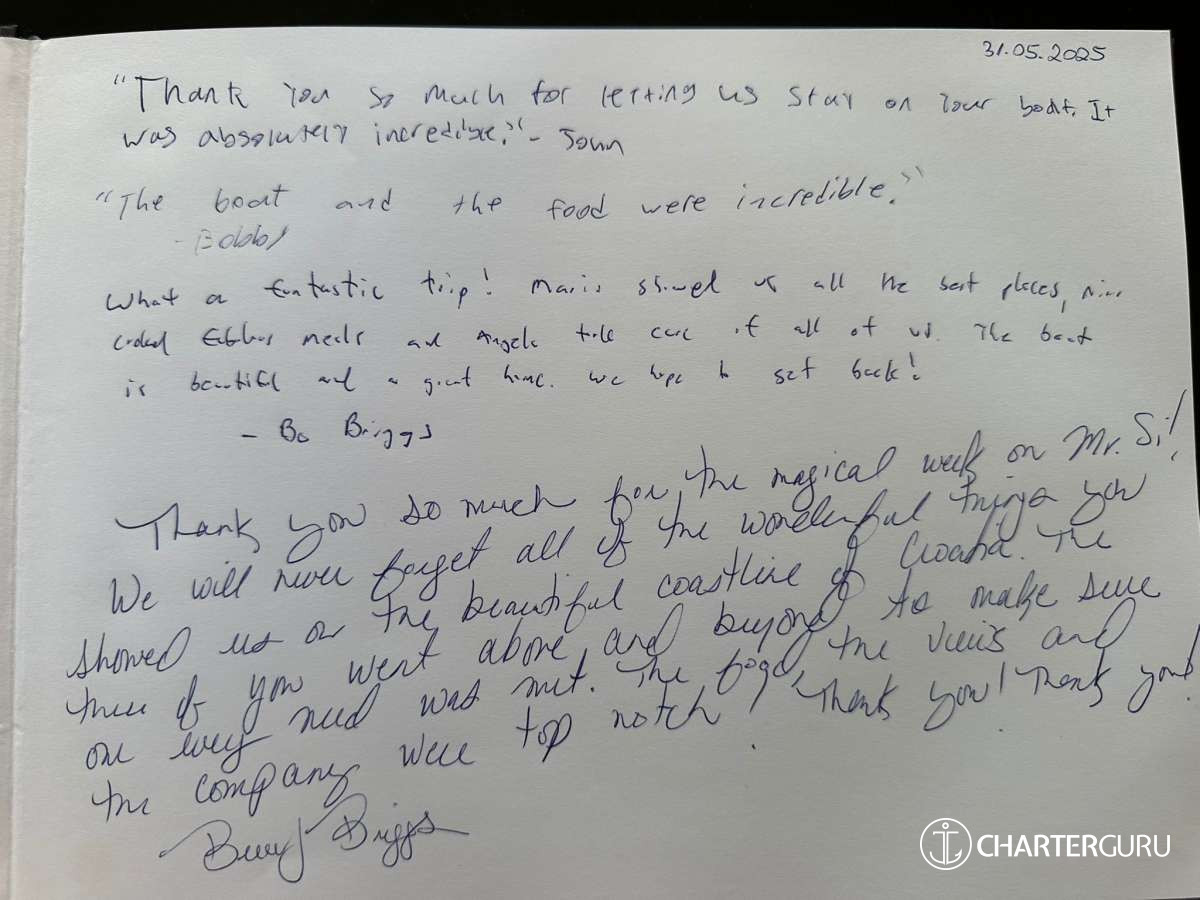 31.05.2025
"Thank You so much for letting us stay on your boat. It
was absolutely incredible." - John
"The boat and the food were incredible."
- Bobby
What a fantastic trip! Mario showed us all the best places,
cooked fabulous meals and Angela took care of all of us. The boat
is beautiful and a great home. We hope to get back!
- Bo Briggs
Thank you so much for the magical week on Mr. Si!
We will never forget all of the wonderful things you
showed us on the beautiful coastline of Croatia. The
three of you went above and beyond to make sure
our every need was met. The food, the views and
the company were top notch! Thank you! Thank you!
Briggs
CHARTERGURU